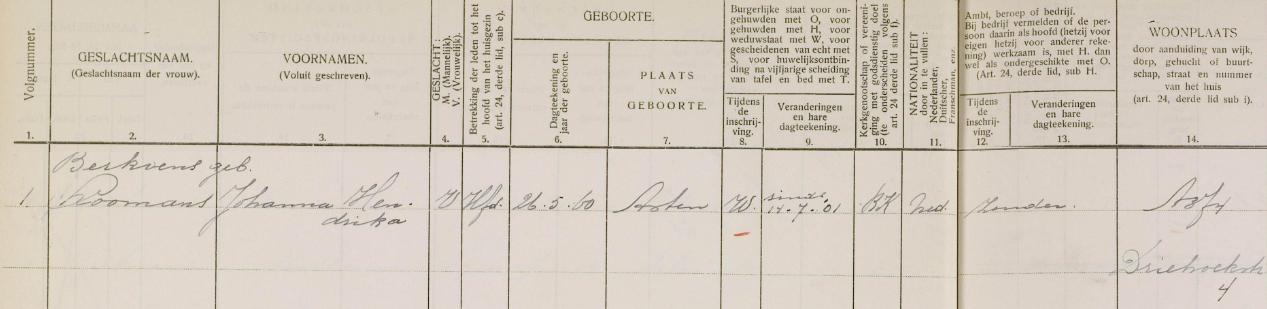 Volgnummer.
1.
GESLACHTSNAAM.
(Geslachtsnaam der vrouw).
2.
VOORNAMEN.
(Voluit geschreven).
3.
GESLACHT:
M. (Mannelijk).
V. (Vrouwelijk).
4.
Betrekking der leden tot het
hoofd van het huisgezin
(art. 24, derde lid, sub c).
5.
GEBOORTE.
Dagteekening en
jaar der geboorte.
6.
PLAATS
VAN
GEBOORTE.
7.
Burgerlijke staat voor on-
gehuwden met O, voor
gehuwden met H, voor
weduwstaat met W, voor
gescheidenen van echt met
S, voor huwelijksontbin-
ding na vijfjarige scheiding
van tafel en bed met T.
Tijdens
de
inschrij-
ving.
8.
Veranderingen
en hare
dagteekening.
9.
Kerkgenootschap of vereeni-
ging met godsdienstig doel
(te onderscheiden volgens
art. 24 derde lid sub f).
10.
NATIONALITEIT
door in te vullen:
Nederlander,
Duitscher,
Franschman, enz.
11.
Ambt, beroep of bedrijf.
Bij bedrijf vermelden of de per-
soon daarin als hoofd (hetzij voor
eigen hetzij voor anderer reke-
ning) werkzaam is, met H. dan
wel als ondergeschikte met O.
(Art. 24, derde lid, sub H.
Tijdens
de
inschrij-
ving.
12.
Veranderingen
en hare
dagteekening.
13.
WOONPLAATS
door aanduiding van wijk,
dorp, gehucht of buurt-
schap, straat en nummer
van het huis
(art. 24, derde lid sub i).
14.
Berkvens geb.
1. Koomans Johanna Hen- V Hfd. 26.5.60 Asten W. sinds RK Ned. Zonder.
drika 14.7.01
Driehoekstr
4